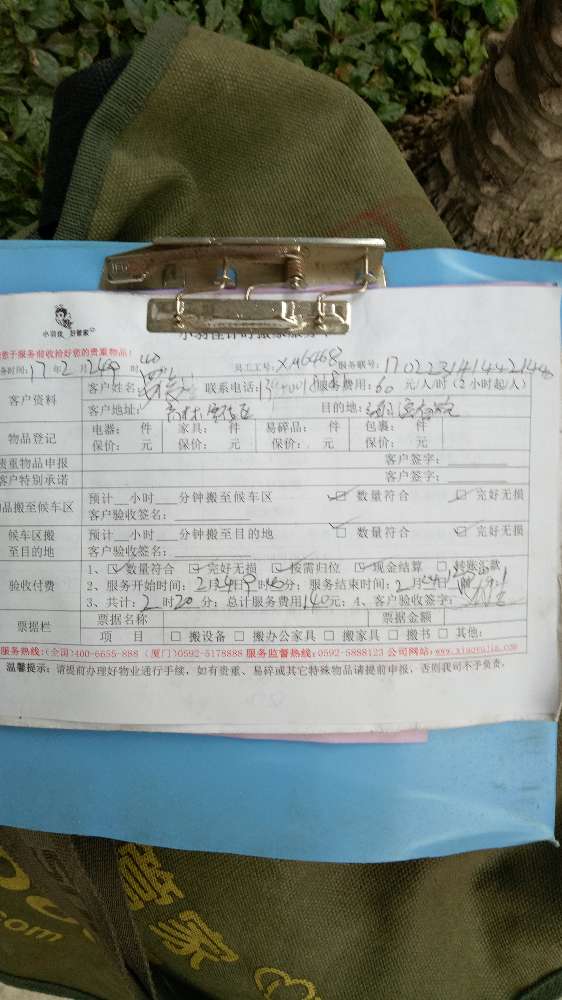 小羽佳 好管家
小羽佳计时搬家服务
您于服务前收拾好您的贵重物品!
务时间: 17年2月24日 时 员工工号: XM6468 服务联号: 170223141442144
客户资料 客户姓名: 联系电话: 服务费用: 60 元/人/时 (2小时起/人)
客户地址: 目的地:
物品登记 电器: 件 家具: 件 易碎品: 件 包裹: 件
保价: 元 保价: 元 保价: 元 保价: 元
贵重物品申报 客户签字:
客户特别承诺 客户签字:
品搬至候车区 预计__小时__分钟搬至候车区 数量符合 完好无损
客户验收签名:
候车区搬至目的地 预计__小时__分钟搬至目的地 数量符合 完好无损
客户验收签名:
验收付费 1、数量符合 完好无损 按需归位 现金结算 转账汇款
2、服务开始时间: 2月24日9时40分; 服务结束时间: 2月24日12时 分;
3、共计: 2时20分; 总计服务费用140元; 4、客户验收签字:
票据栏 票据名称 票据金额
项 目 搬设备 搬办公家具 搬家具 搬书 其他:
服务热线:(全国)400-6655-888 (厦门)0592-5178888 服务监督热线:0592-5888123 公司网站:www.xiaoyujia.com
温馨提示: 请提前办理好物业通行手续, 如有贵重、易碎或其它特殊物品请提前申报, 否则我司不予负责.
管家
.com